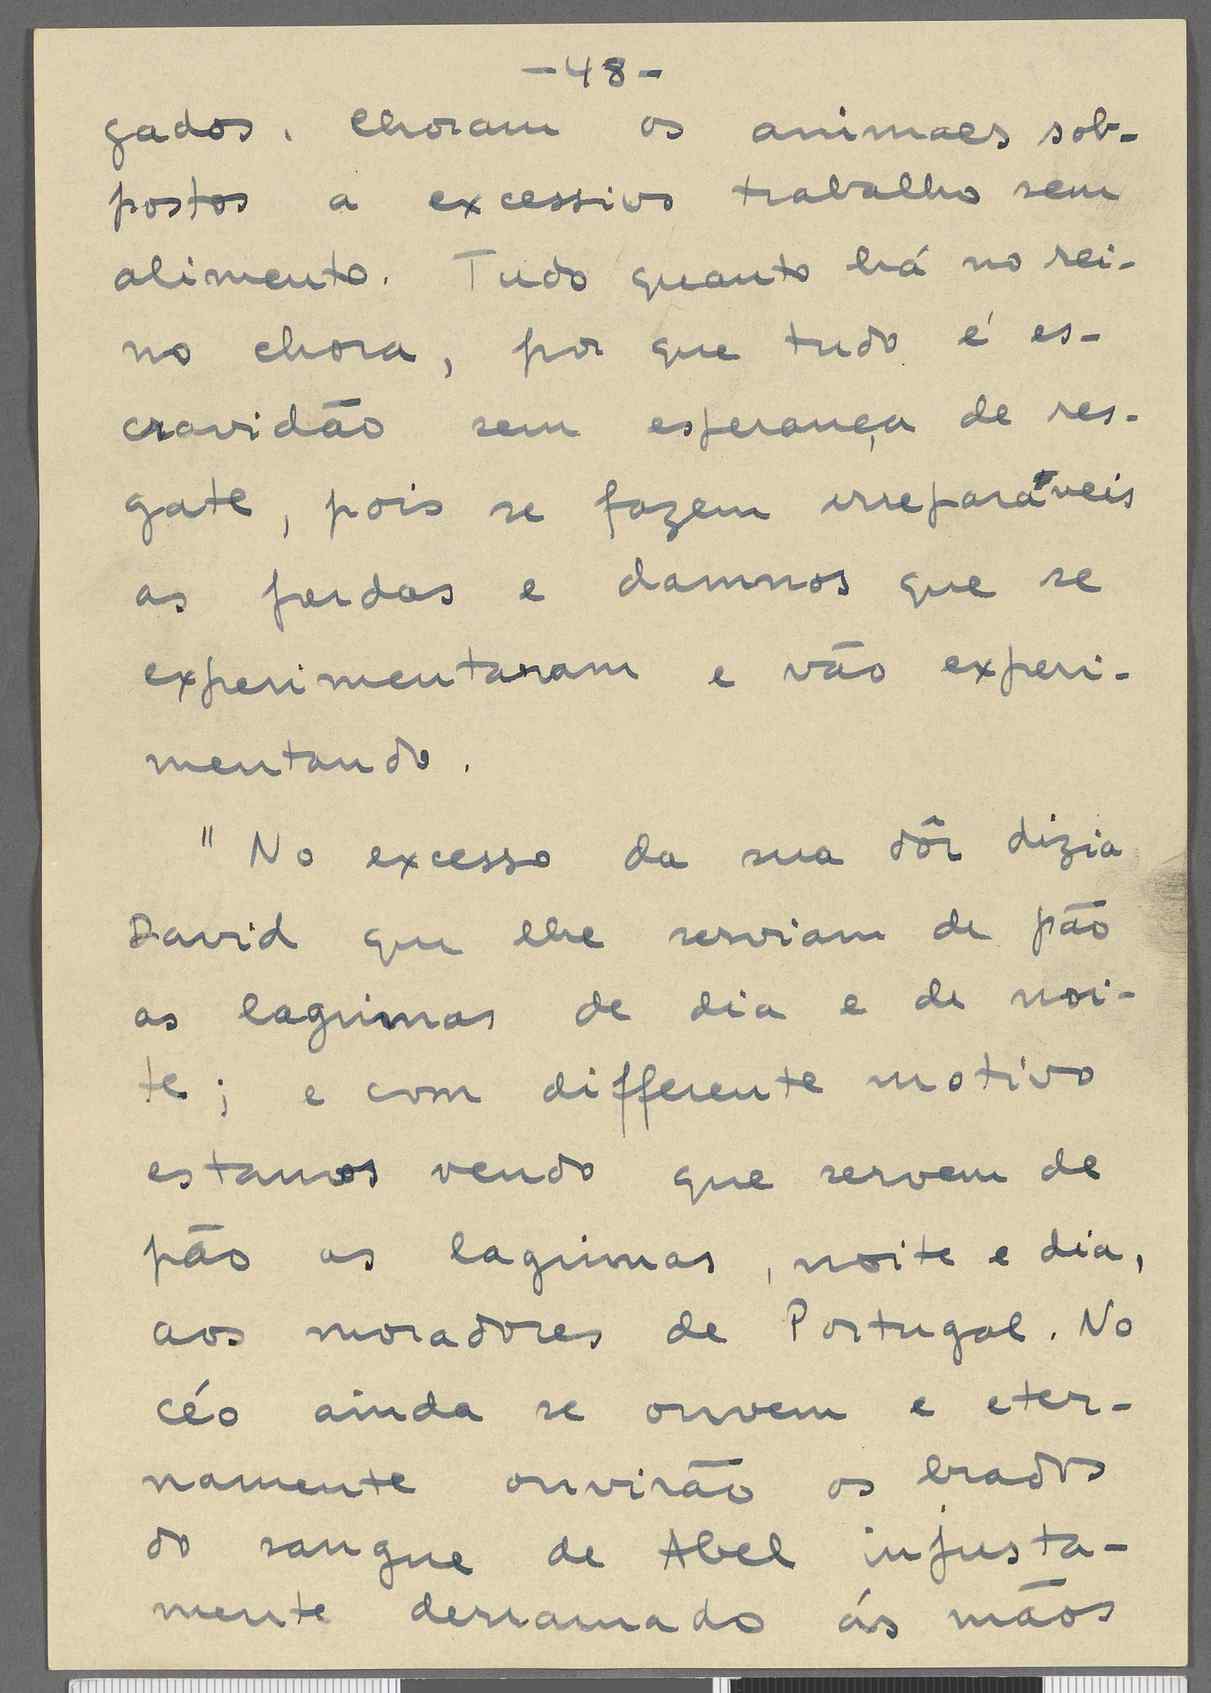 -48-
gados. Choram os animaes sob-
postos a excessivo trabalho sem
alimento. Tudo quanto há no rei-
no chora, por que tudo é es-
cravidão sem esperança de res-
gate, pois se fazem irreparáveis
as perdas e damnos que se
experimentaram e vão experi-
mentando.
" No excesso da sua dôr dizia
David que lhe serviam de pão
as lagrimas de dia e de noi-
te; e com differente motivo
estamos vendo que servem de
pão as lagrimas, noite e dia,
aos moradores de Portugal. No
céo ainda se ouvem e eter-
namente ouvirão os brados
do sangue de Abel injusta-
mente derramado ás mãos